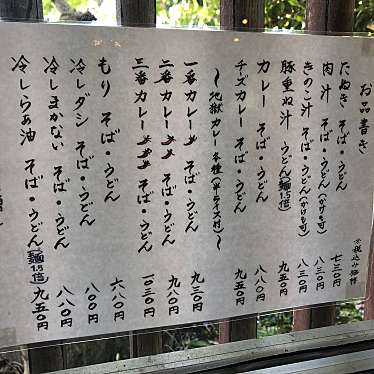 お品書き
※税込み価格
たぬき そば・うどん 七三〇円
肉汁 そば・うどん(かけも可) 八三〇円
きのこ汁 そば・うどん(かけも可) 八三〇円
豚重ね汁 うどん(麺1.5倍) 九五〇円
カレー そば・うどん 八八〇円
チーズカレー そば・うどん 九五〇円
〜地獄カレー各種(半ライス付)〜
一番カレー そば・うどん 九三〇円
二番カレー そば・うどん 九八〇円
三番カレー そば・うどん 一〇三〇円
もり そば・うどん 六八〇円
冷しダシ そば・うどん 八〇〇円
冷しまかない そば・うどん 八八〇円
冷しらぁ油 そば・うどん(麺1.5倍) 九五〇円